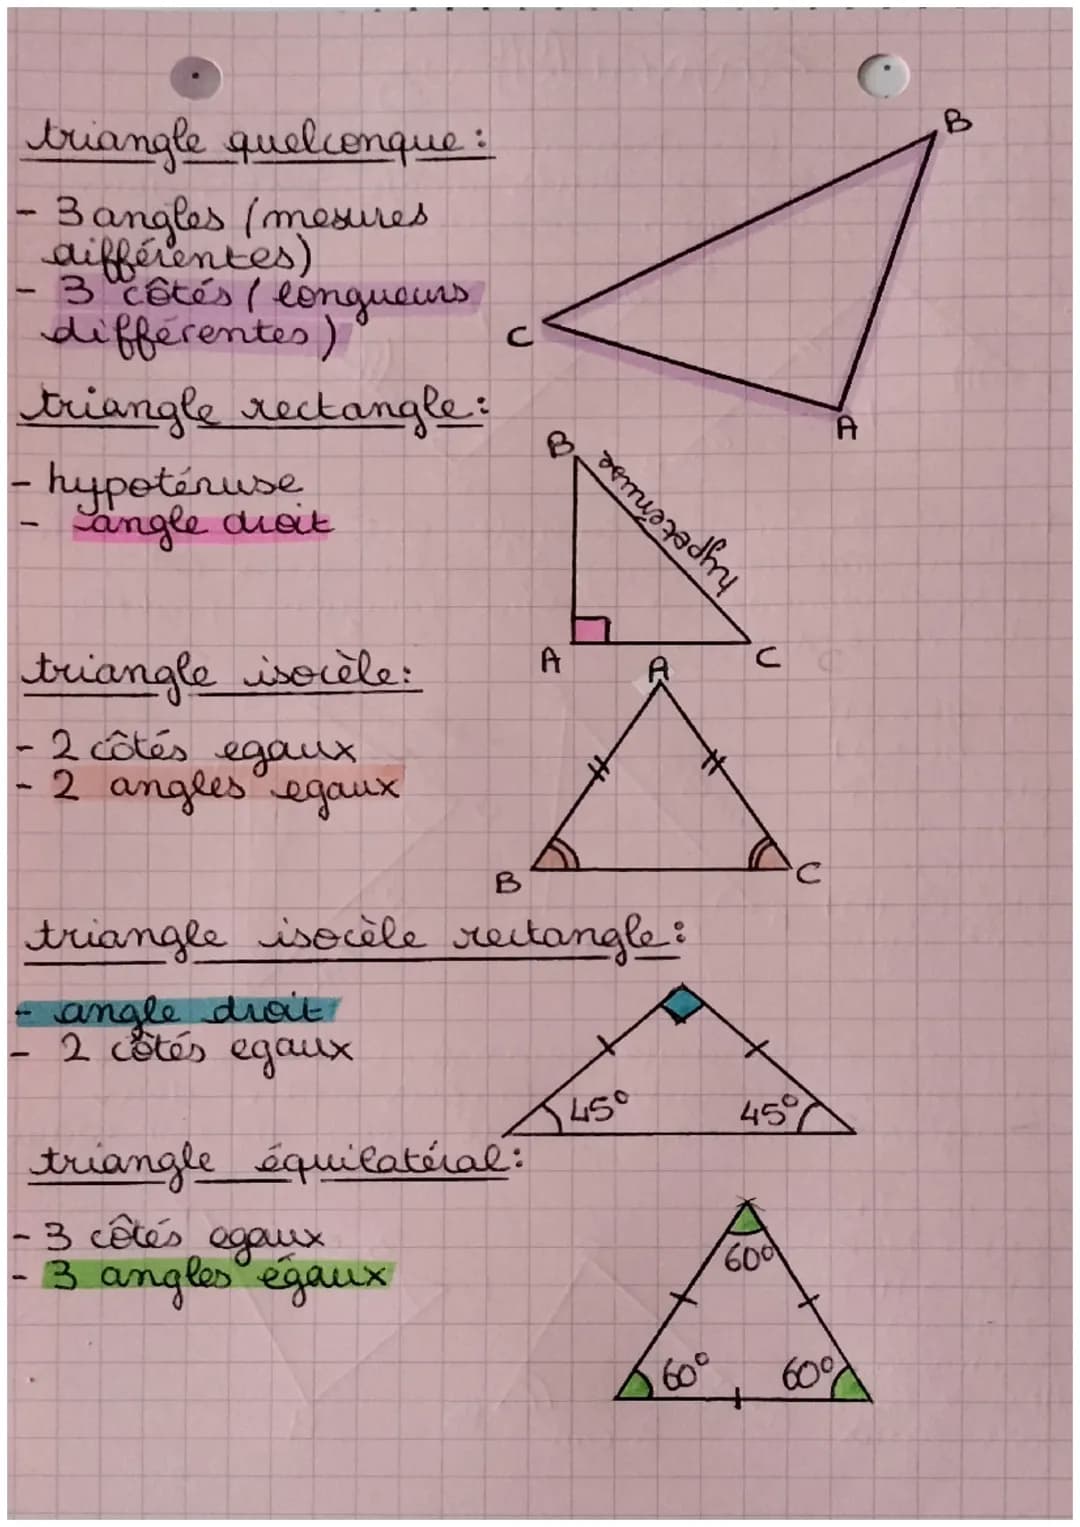 triangle quelconque :
B
- 3 angles (mesures
différentes)
- 3 côtés (longueurs
différentes)
C
A
triangle rectangle :
B
hypoténuse
- hypoténuse
- angle droit
A
C
triangle isocèle :
A
- 2 côtés egaux
- 2 angles egaux
B
C
triangle isocèle rectangle :
- angle droit
- 2 côtés egaux
45° 45°
triangle équilatéral :
- 3 côtés egaux
60°
- 3 angles égaux
60° 60°